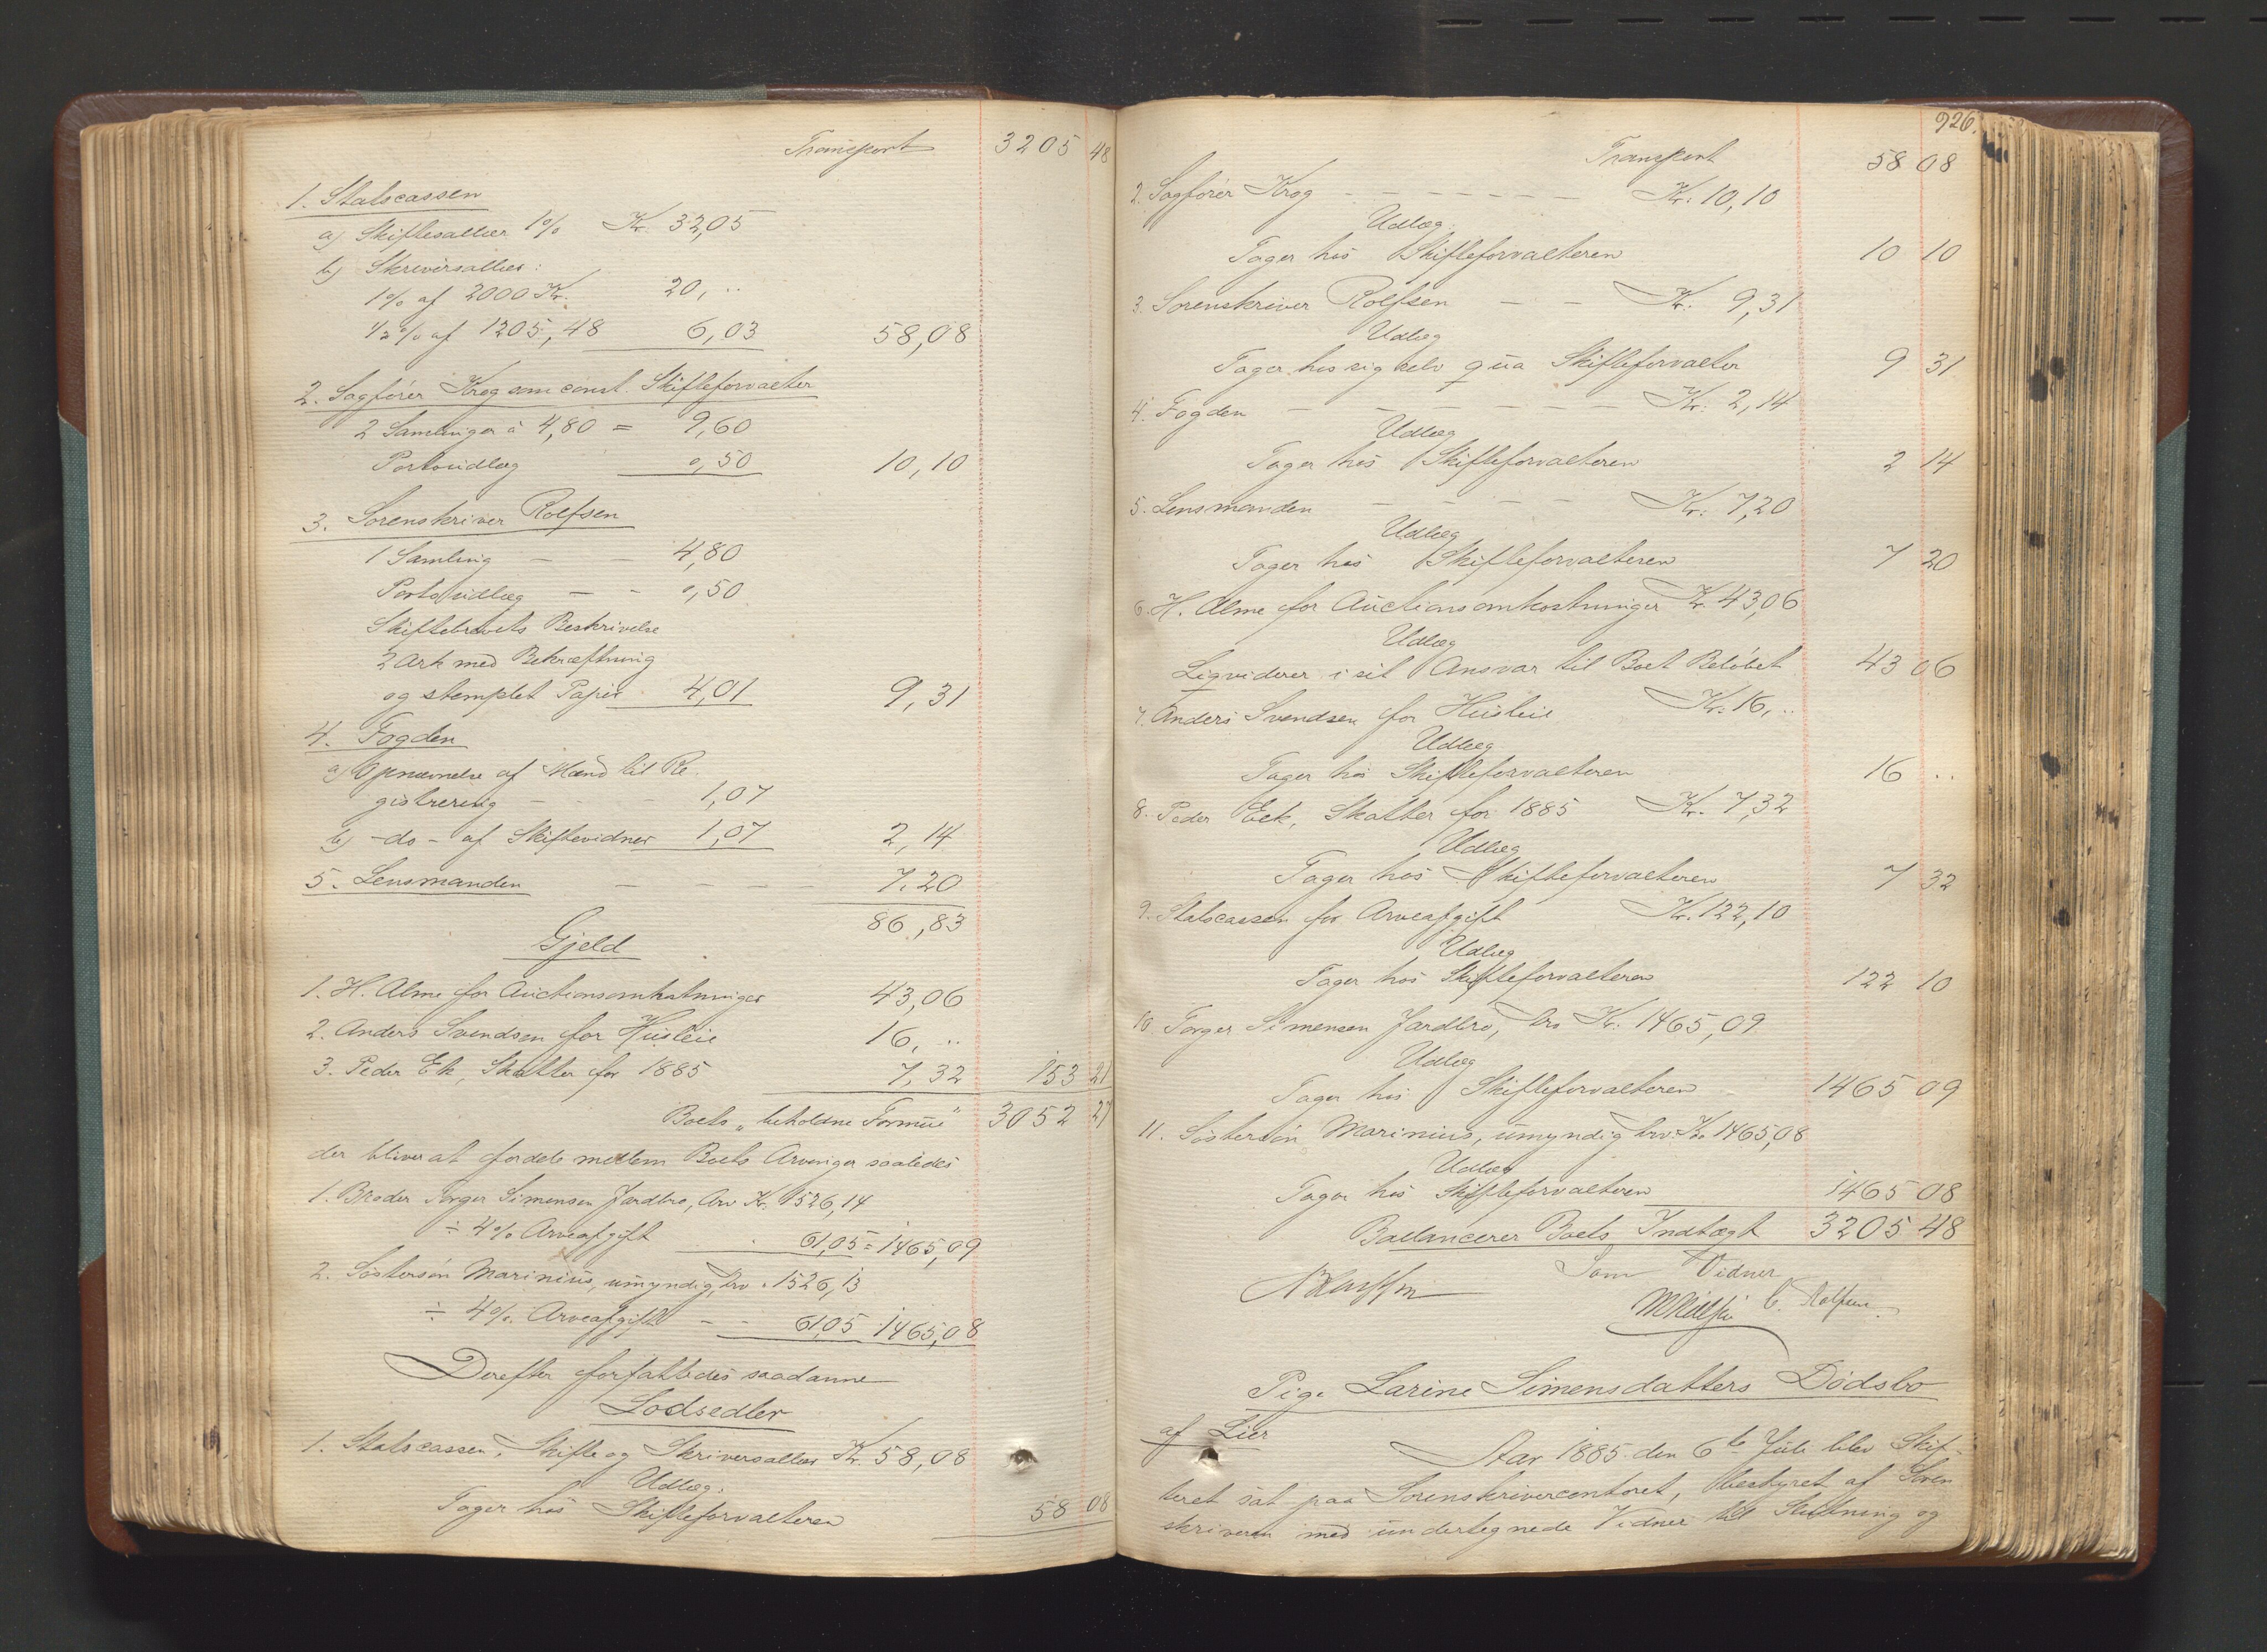 Transport 3205 48
1. Statscassen
a) Skiftesallær 1% Kr. 32,05
b) Skriversallær:
1% af 2000 Kr. 20, ..
1/2% af 1205,48 6,03 58,08
2. Sagfører Krog som const. Skifteforvalter
2 Samlinger à 4,80 = 9,60
Portoudlæg 0,50 10,10
3. Sorenskriver Rolfsen
1 Samling — — 4,80
Portoudlæg — - 0,50
Skiftebrevets Beskrivelse
2 Ark med Bekræftning
og stemplet Papir 4,01 9,31
4. Fogden
a) Opnævnelse af Mænd til Re-
gistrering - - - 1,07
b) -do- af Skiftevidner 1,07 2,14
5. Lensmanden — — — — 7,20
86,83
Gjeld
1. H. Alme for Auctionsomkostninger 43,06
2. Anders Svendsen for Husleie 16, ..
3. Peder Ek, Skatter for 1885 7,32 153 21
Boets „beholdne Formue" 3052 27
der bliver at fordele mellem Boets Arvinger saaledes
1. Broder Torger Simensen Jardbro, Arv Kr. 1526,14
÷ 4% Arveafgift 61,05 = 1465,09
2. Søstersøn Marinius, umyndig, Arv " 1526,13
÷ 4% Arveafgift - - 61,05 1465,08
Derefter forfattedes saadanne
Lodsedler
1. Statscassen, Skifte og Skriversallær Kr. 58,08
Udlæg:
Tager hos Skifteforvalteren 58 08
926.
Transport 58 08
2. Sagfører Krog - - - - - - Kr: 10,10
Udlæg
Tager hos Skifteforvalteren 10 10
3. Sorenskriver Rolfsen — — Kr. 9,31
Udlæg
Tager hos sig selv qua Skifteforvalter 9 31
4. Fogden - - - - - - Kr: 2,14
Udlæg
Tager hos Skifteforvalteren 2 14
5. Lensmanden - - - - Kr: 7,20
Udlæg
Tager hos Skifteforvalteren 7 20
6. H. Alme for Auctionsomkostninger Kr. 43,06
Udlæg
Liqviderer i sit Ansvar til Boet Beløbet 43 06
7. Anders Svendsen for Husleie Kr: 16, ..
Udlæg
Tager hos Skifteforvalteren 16 ..
8. Peder Eek, Skatter for 1885 Kr. 7,32
Udlæg
Tager hos Skifteforvalteren 7 32
9. Statscassen for Arveafgift Kr. 122,10
Udlæg
Tager hos Skifteforvalteren 122 10
10 Torger Simensen Jardbro, Arv Kr: 1465,09
Udlæg
Tager hos Skifteforvalteren 1465 09
11. Søstersøn Marinius, umyndig Arv. Kr 1465,08
Udlæg
Tager hos Skifteforvalteren 1465 08
Ballancerer Boets Indtægt 3205 48
Som Vidner
C. Rolfsen
Pige Larine Simensdatters Dødsbo
af Lier
Aar 1885 den 6te Juli blev Skif-
teret sat paa Sorenskrivercontoret, bestyret af Soren
skriveren med undertegnede Vidner til Slutning og